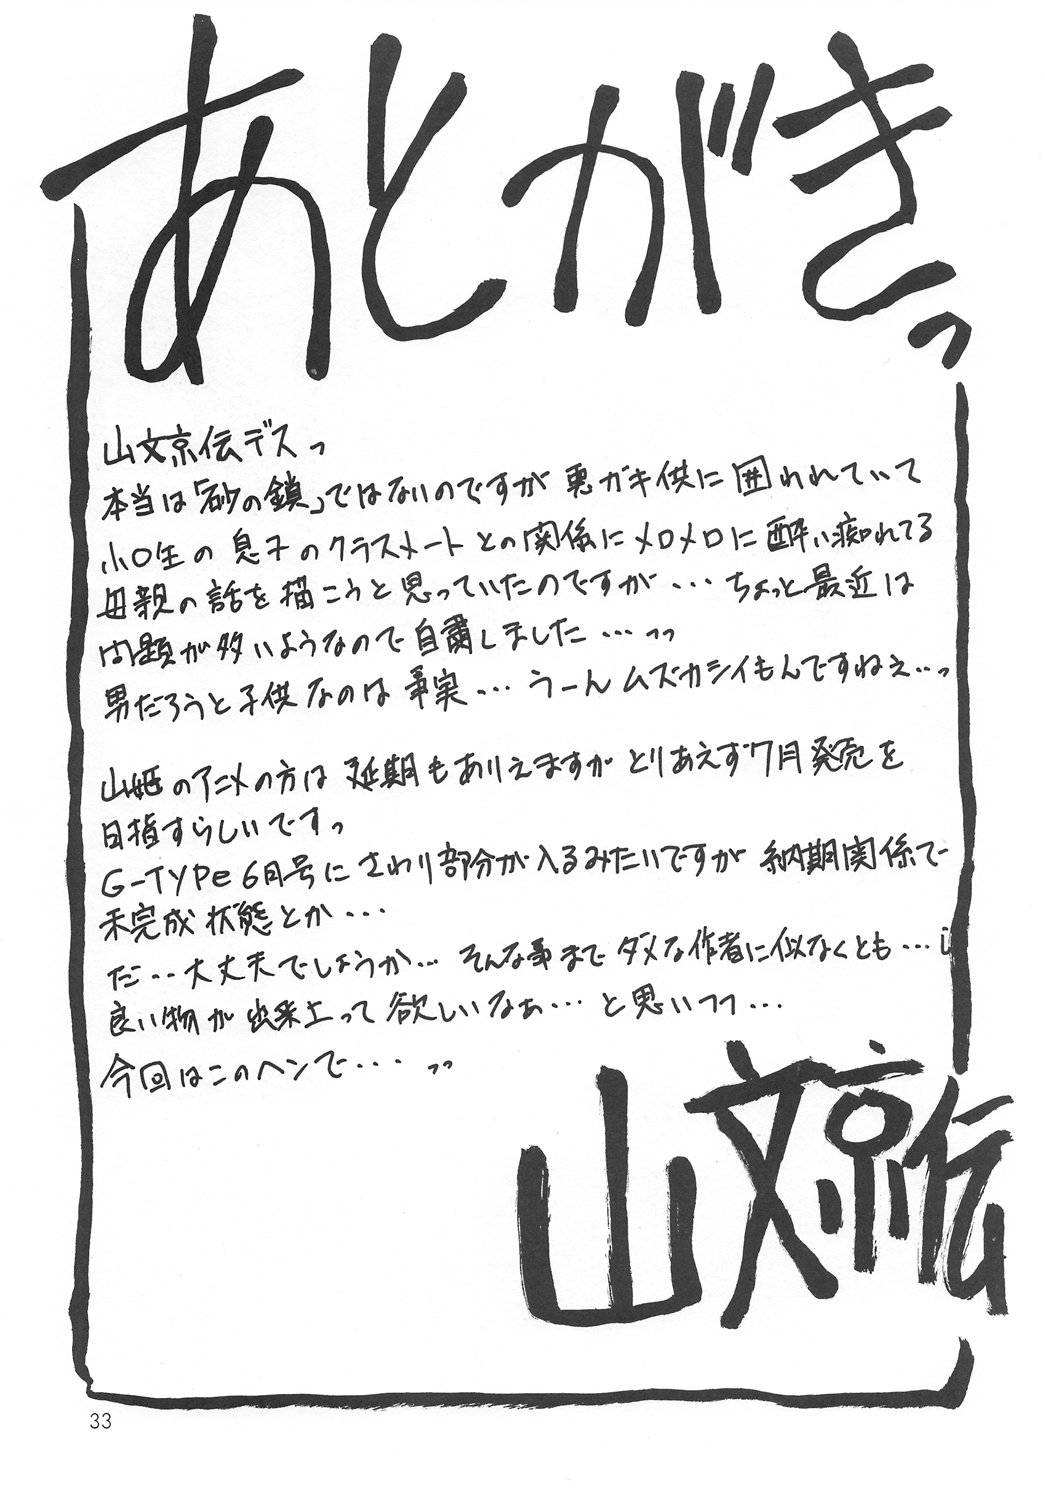 あとがきっ
山文京伝デスっ
本当は「砂の鎖」ではないのですが 悪ガキ供に 囲われていて
小〇生の 息子のクラスメートとの関係にメロメロに酔い痴れてる
母親の話を描こうと思っていたのですが・・・ちょっと最近は
問題が多いようなので自粛しました・・・っっ
男だろうと子供なのは事実・・・うーんムズカシイもんですねえ・・・っ
山姫のアニメの方は延期もありえますがとりあえず7月発売を
目指すらしいですっ
G-TYPe 6月号にさわり部分が入るみたいですが納期関係で
未完成状態とか・・・
だ・・大丈夫でしょうか・・・そんな事までダメな作者に似なくとも・・・
良い物が出来上って欲しいなぁ・・・と思いつつ・・・
今回はこのヘンで・・・っっ
山文京伝
33